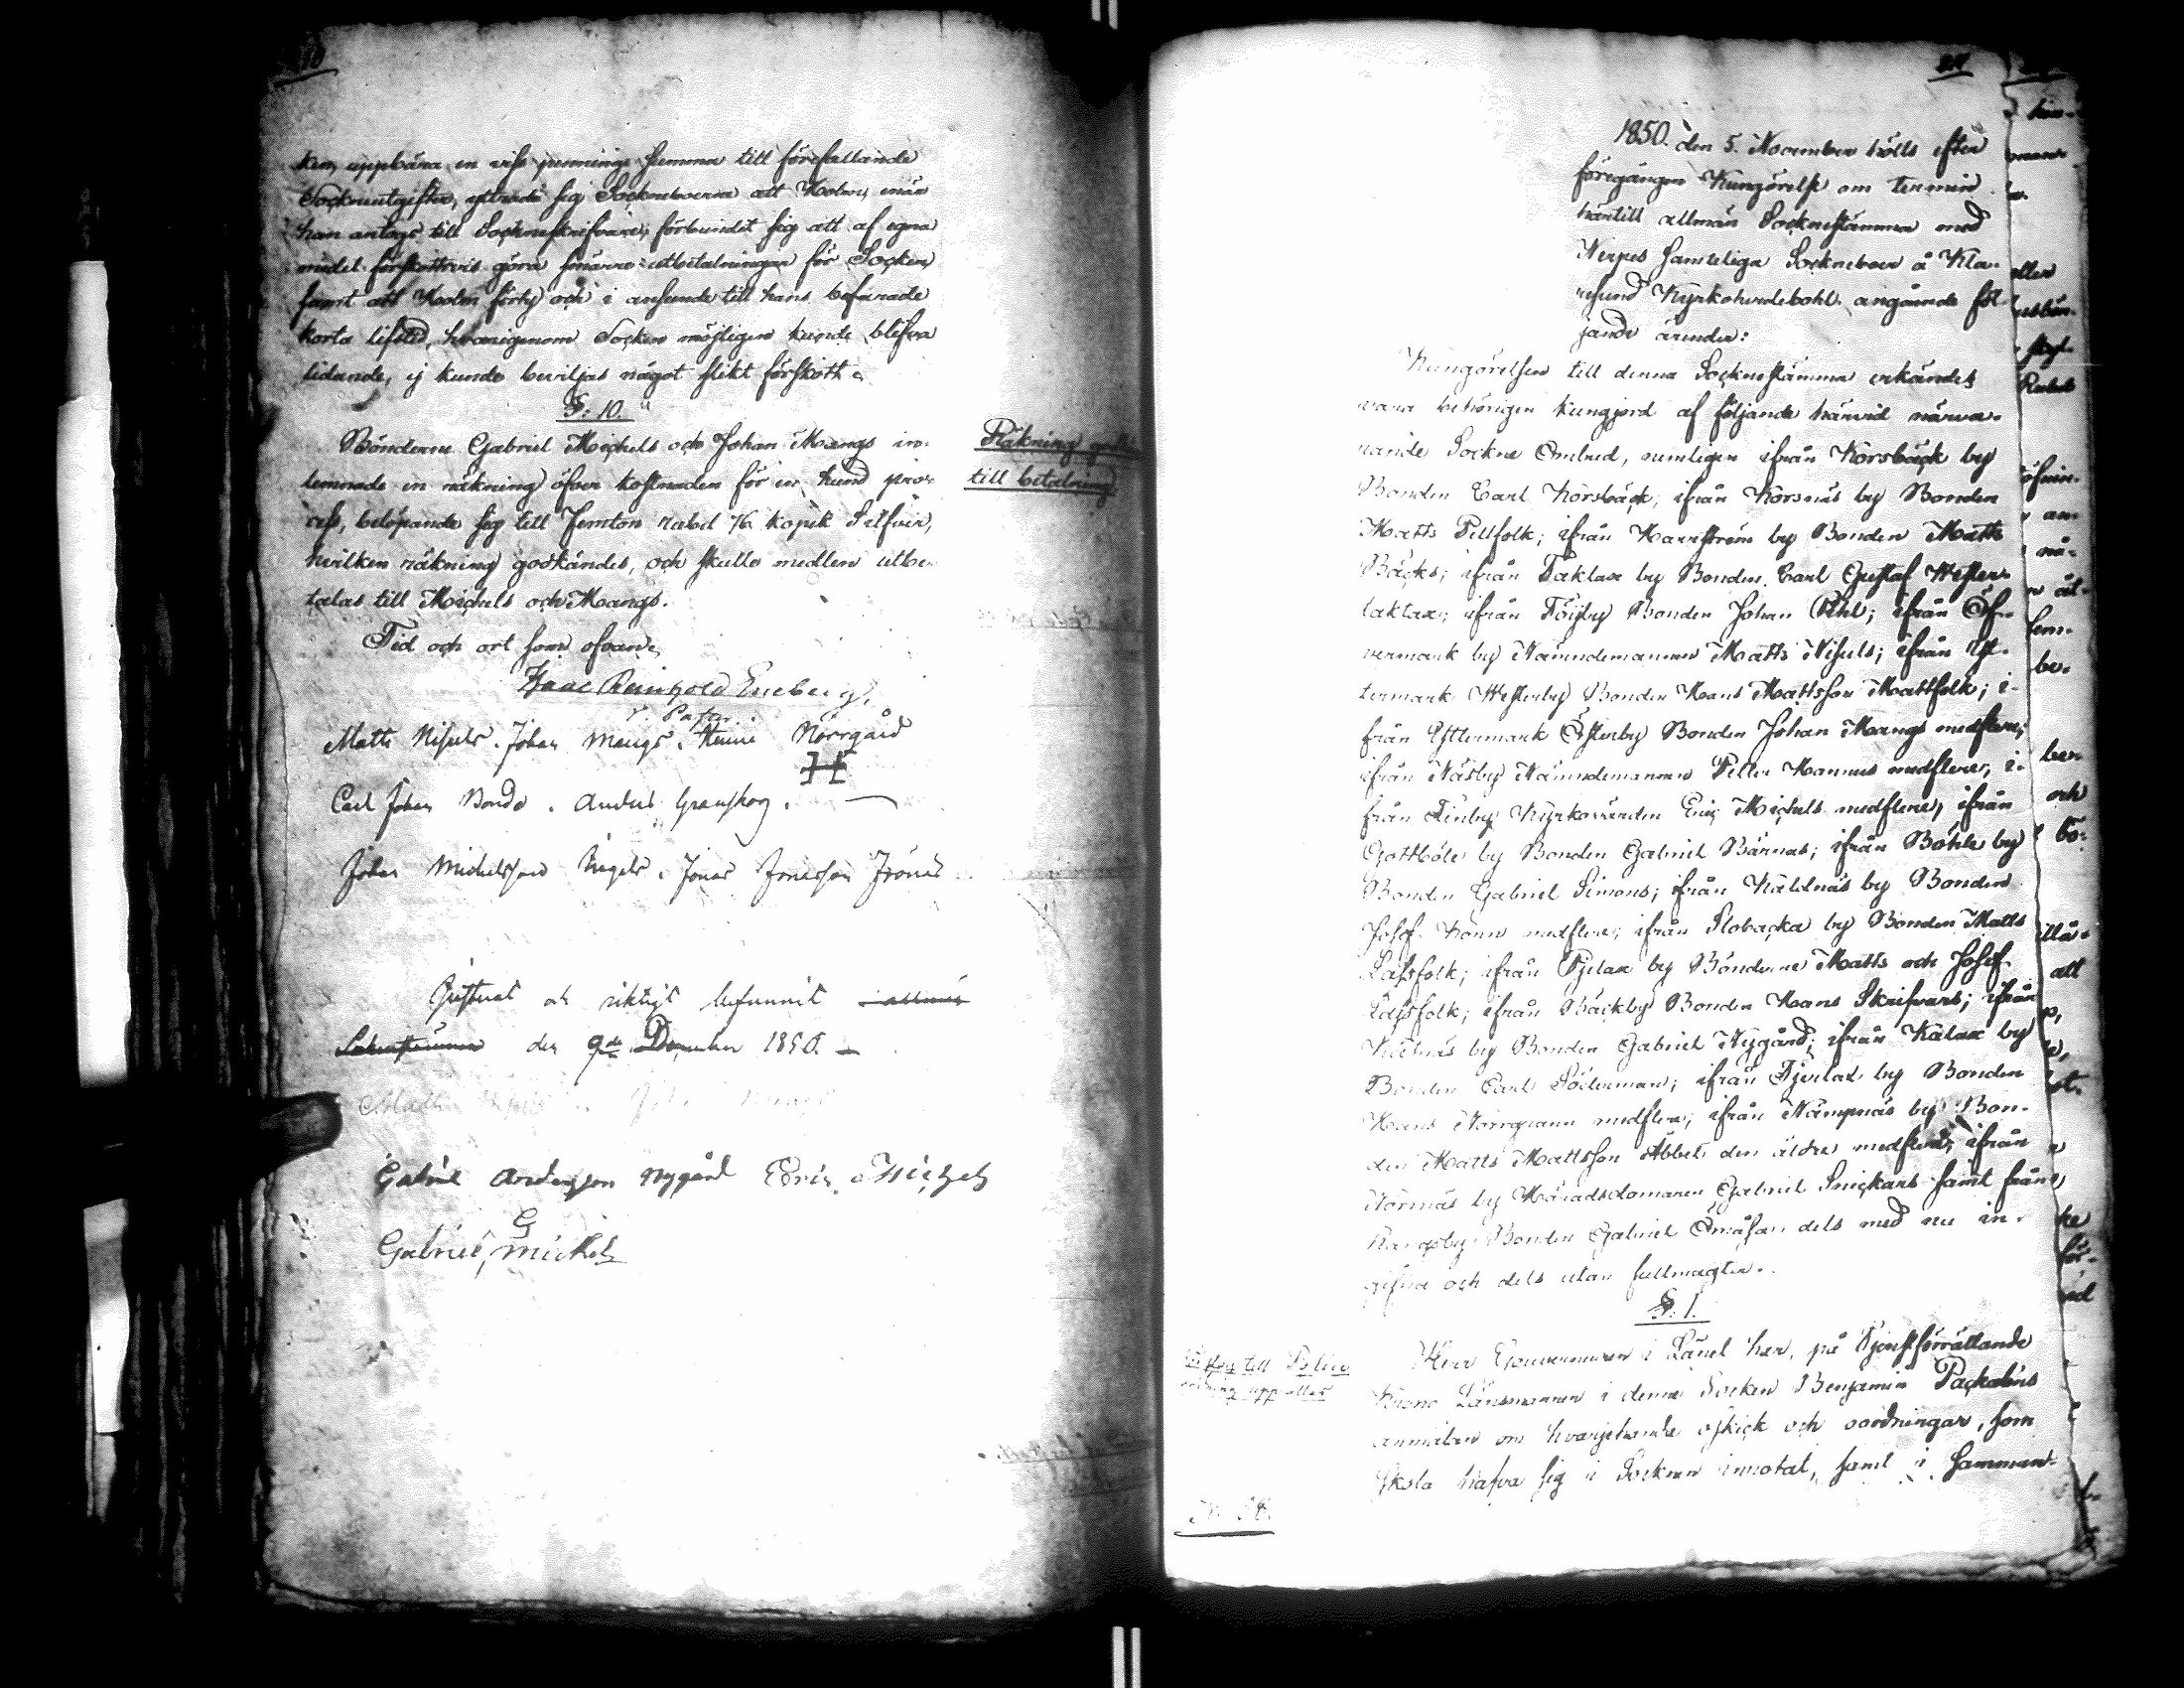 ken, uppbära en viss pennings summa till förefallande
Sockneutgifter, yttrade sig Sockneboerne att Holm, enär
han antogs till Socknskrifvare, förbundit sig att af egna
medel förskottsvis göra smärre utbetalningar för Socken,
samt att Holm förty och i anseende till hans befarade
korta lifstid, hvarigenom Socken möjligen kunde blifva
lidande, ej kunde beviljas något slikt förskott.
§: 10.
Bönderne Gabriel Michels och Johan Mangs in-
Räkning
lemnade en räkning öfver kostnaden för en hund pro-
till betalning
cess, belöpande sig till Femton rubel 76 kopek Silfver,
hvilken räkning godkändes, och skulle medlen utbe-
talas till Michels och Mangs.
Tid och ort som ofvan.
Isaac Reinhold Eneberg,
v. Pastor
Matts Nisuls. Johan Mangs. Norrgård
Carl Johan Bonde. Anders Granskog.
Johan Michelsson Jonas
Justerat och riktigt befunnit i allmän
Sockenstämma den 9de December 1850.
Gabriel Andersson Nygård Eric Michels
G
Gabriel Michels
1850. den 5. November hölls efter
föregången Kungörelse om termin
härtill allmän Socknestämma med
Nerpes samteliga Sockneboer å Kla-
resund Kyrkoherdebohl angående föl-
jande ärender:
Kungörelsen till denna Socknestämma erkändes
vara behörigen kungjord af följande härvid närva-
rande Sockne Ombud, nemligen ifrån Korsbäck by
Bonden Carl Korsbäck; ifrån Korsnäs by Bonden
Matts Pellfolk; ifrån Harrström by Bonden Matts
Bäcks; ifrån Taklax by Bonden Carl Gustaf Wester-
taklax; ifrån Töjby Bonden Johan Pihl; ifrån Öf-
vermark by Nämndemannen Matts Nisuls; ifrån Yt-
termark Westerby Bonden Hans Mattsson Mattfolk; i-
från Yttermark Österby Bonden Johan Mangs medflere;
ifrån Näsby Nämndemannen Petter Hannus medflere; i-
från Finby Kyrkovärden Eric Michels medflere; ifrån
Gottböle by Bonden Gabriel Bärnas; ifrån Böhle by
Bonden Gabriel Simons; ifrån Kaldnäs by Bonden
Josef medflere; ifrån Slobacka by Bonden Matts
Lassfolk; ifrån Pjelax by Bönderne Matts och Josef
Lassfolk; ifrån Bäckby Bonden Hans Skrifvars; ifrån
by Bonden Gabriel Nygård; ifrån Kalax by
Bonden Carl Söderman; ifrån Tjerlax by Bonden
Hans Norrgrann medflere; ifrån Nämpnäs by Bon-
den Matts Mattsson Abbet den äldre medflere; ifrån
Norrnäs by Häradsdomaren Gabriel Snickars samt från
Rangsby Bonden Gabriel dels med nu in-
gifne och dels utan fullmagter.
§: 1.
Herr Gouverneuren i Länet har, på Tjenstförrättande
till Police
Krono Länsmannen i denne Socken Benjamin Packaléns
ordning
anmälan om hvarjehanda oskick och oordningar, som
skola hafva sig i Socknen innotat, samt i samman-